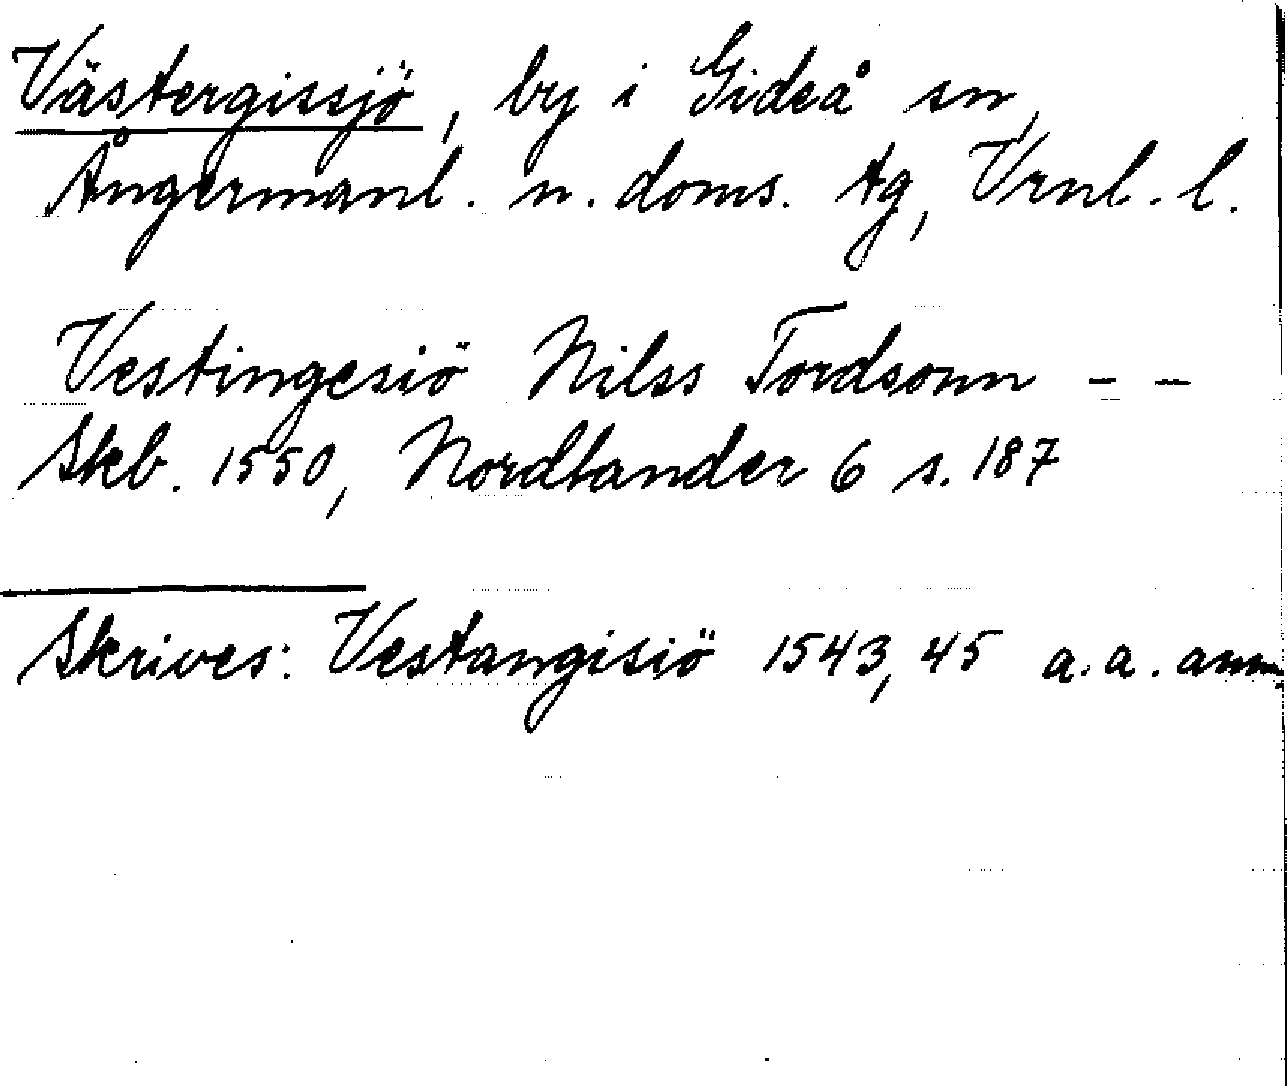 Västergissjö, by i Gideå sn,
Ångermanl. n. doms. tg, Vrnl. l.
Vestingesiö Nilss Tordsonn - -
Skb. 1550, Nordlander 6 s. 187
Skrives: Vestangisiö 1543, 45 a. a. anm.